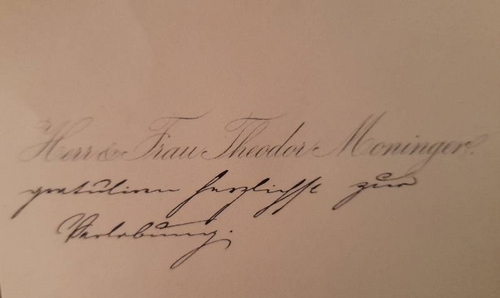 Herr & Frau Theodor Moninger.
gratuliren herzlichst zur
Verlobung.